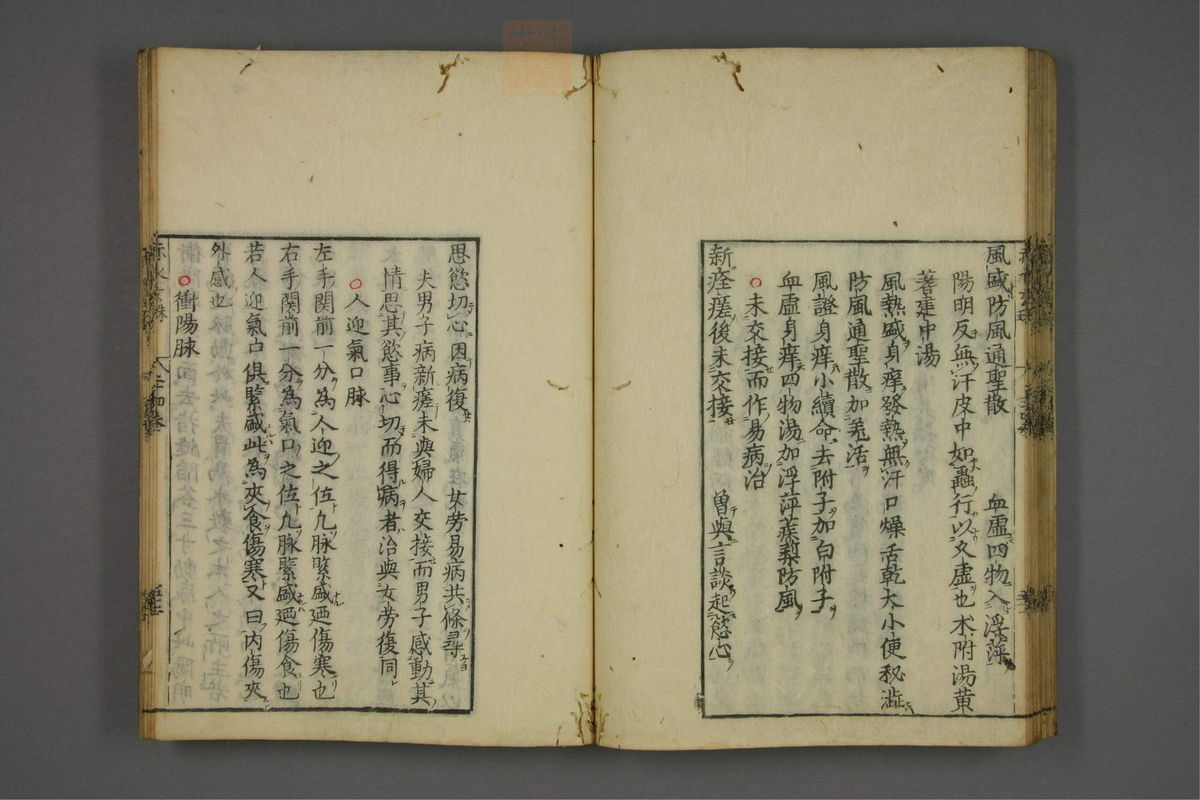 風盛防風通聖散　血虛四物入浮萍
陽明反無汗皮中如蟲行以久虛也朮附湯黄
蓍建中湯
風熱盛身痒發熱無汗口燥舌乾大小便秘澁
防風通聖散加羗活
風證身痒小續命去附子加白附子
血虛身痒四物湯加浮萍蒺梨防風
未交接而作易病治
新痊瘥後未交接　曽與言談起慾心
思慾切心因病復　女勞易病共條尋
夫男子病新瘥未與婦人交接而男子感動其
情思其慾事心切而得病者治與女勞復同
人迎氣口脉
左手関前一分為人迎之位九脉緊盛廼傷寒也
右手関前一分為氣口之位九脉緊盛廼傷食也
若人迎氣口俱緊盛此為夾食傷寒又曰内傷夾
外感也
衝陽脉